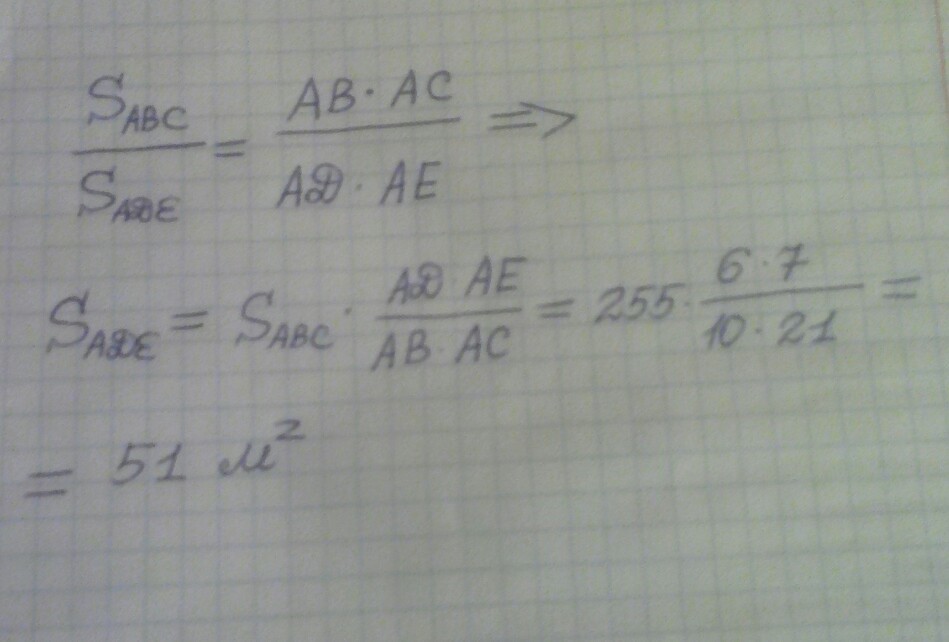 S_ABC / S_ADE = AB · AC / AD · AE =>
S_ADE = S_ABC · AD · AE / AB · AC = 255 · 6 · 7 / 10 · 21 =
= 51 м²